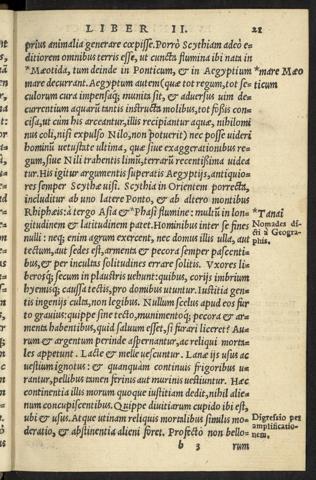 LIBER II. 21
prius animalia generare cœpisse. Porrò Scythiam adeò e-
ditiorem omnibus terris esse, ut cuncta flumina ibi nata in
*Mæotida, tum deinde in Ponticum, & in Aegyptium
*mare Mæo
ticum
mare decurrant. Aegyptum autem (quæ tot regum, tot se-
culorum cura impensaq; munita sit, & aduersus uim de-
currentium aquarũ tantis instructa molibus, tot fossis con-
cisa, ut cùm his arceantur, illis recipiantur aquæ, nihilomi
nus coli, nisi expulso Nilo, non potuerit) nec posse uideri
hominũ uetustate ultima, quæ siue exaggerationibus re-
gum, siue Nili trahentis limũ, terrarũ recentißima uidea
tur. His igitur argumentis superatis Aegyptijs, antiquio-
res semper Scythæ uisi. Scythia in Orientem porrecta,
includitur ab uno latere Ponto, & ab altero montibus
Rhiphæis: à tergo Asia & *Phasi flumine: multũ in lon-
*Tanai
gitudinem & latitudinem patet. Hominibus inter se fines
Nomades di-
cti à Geogra-
phis.
nulli: neq; enim agrum exercent, nec domus illis ulla, aut
tectum, aut sedes est, armenta & pecora semper pascenti-
bus, & per incultas solitudines errare solitis. Vxores li-
berosq; secum in plaustris uehunt: quibus, corijs imbrium
hyemisq; caussa tectis, pro domibus utuntur. Iustitia gen-
tis ingenijs culta, non legibus. Nullum scelus apud eos fur
to grauius: quippe sine tecto, munimentoq; pecora & ar-
menta habentibus, quid saluum esset, si furari liceret? Au-
rum & argentum perinde aspernantur, ac reliqui morta-
les appetunt. Lacte & melle uescuntur. Lanæ ijs usus ac
uestium ignotus: & quanquàm continuis frigoribus u-
rantur, pellibus tamen ferinis aut murinis uestiuntur. Hæc
continentia illis morum quoque iustitiam dedit, nihil alie-
num concupiscentibus. Quippe diuitiarum cupido ibi est,
ubi & usus. Atque utinam reliquis mortalibus similis mo-
Digressio per
amplificatio-
nem.
deratio, & abstinentia alieni foret. Profectò non bello-
b 3 rum